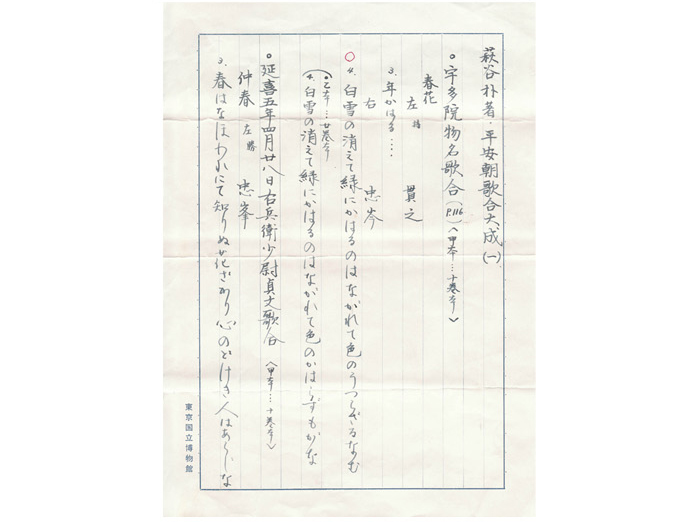 萩谷朴著・平安朝歌合大成(一)
○宇多院物名歌合(P.116)〈甲本…十巻本〉
春花
左 持 貫之
3. 年かはる‥‥
右 忠岑
○4. 白雪の消えて緑にかはるのはながれて色のうつらざるなむ
(乙本…廿巻本
4. 白雪の消えて緑にかはるのはながれて色のかはらずもがな
○延喜五年四月廿八日右兵衛少尉貞文歌合〈甲本…十巻本〉
仲春 左 勝 忠峯
3. 春はなほわれにて知りぬ花ざかり心のどけき人はあらじな
東京国立博物館